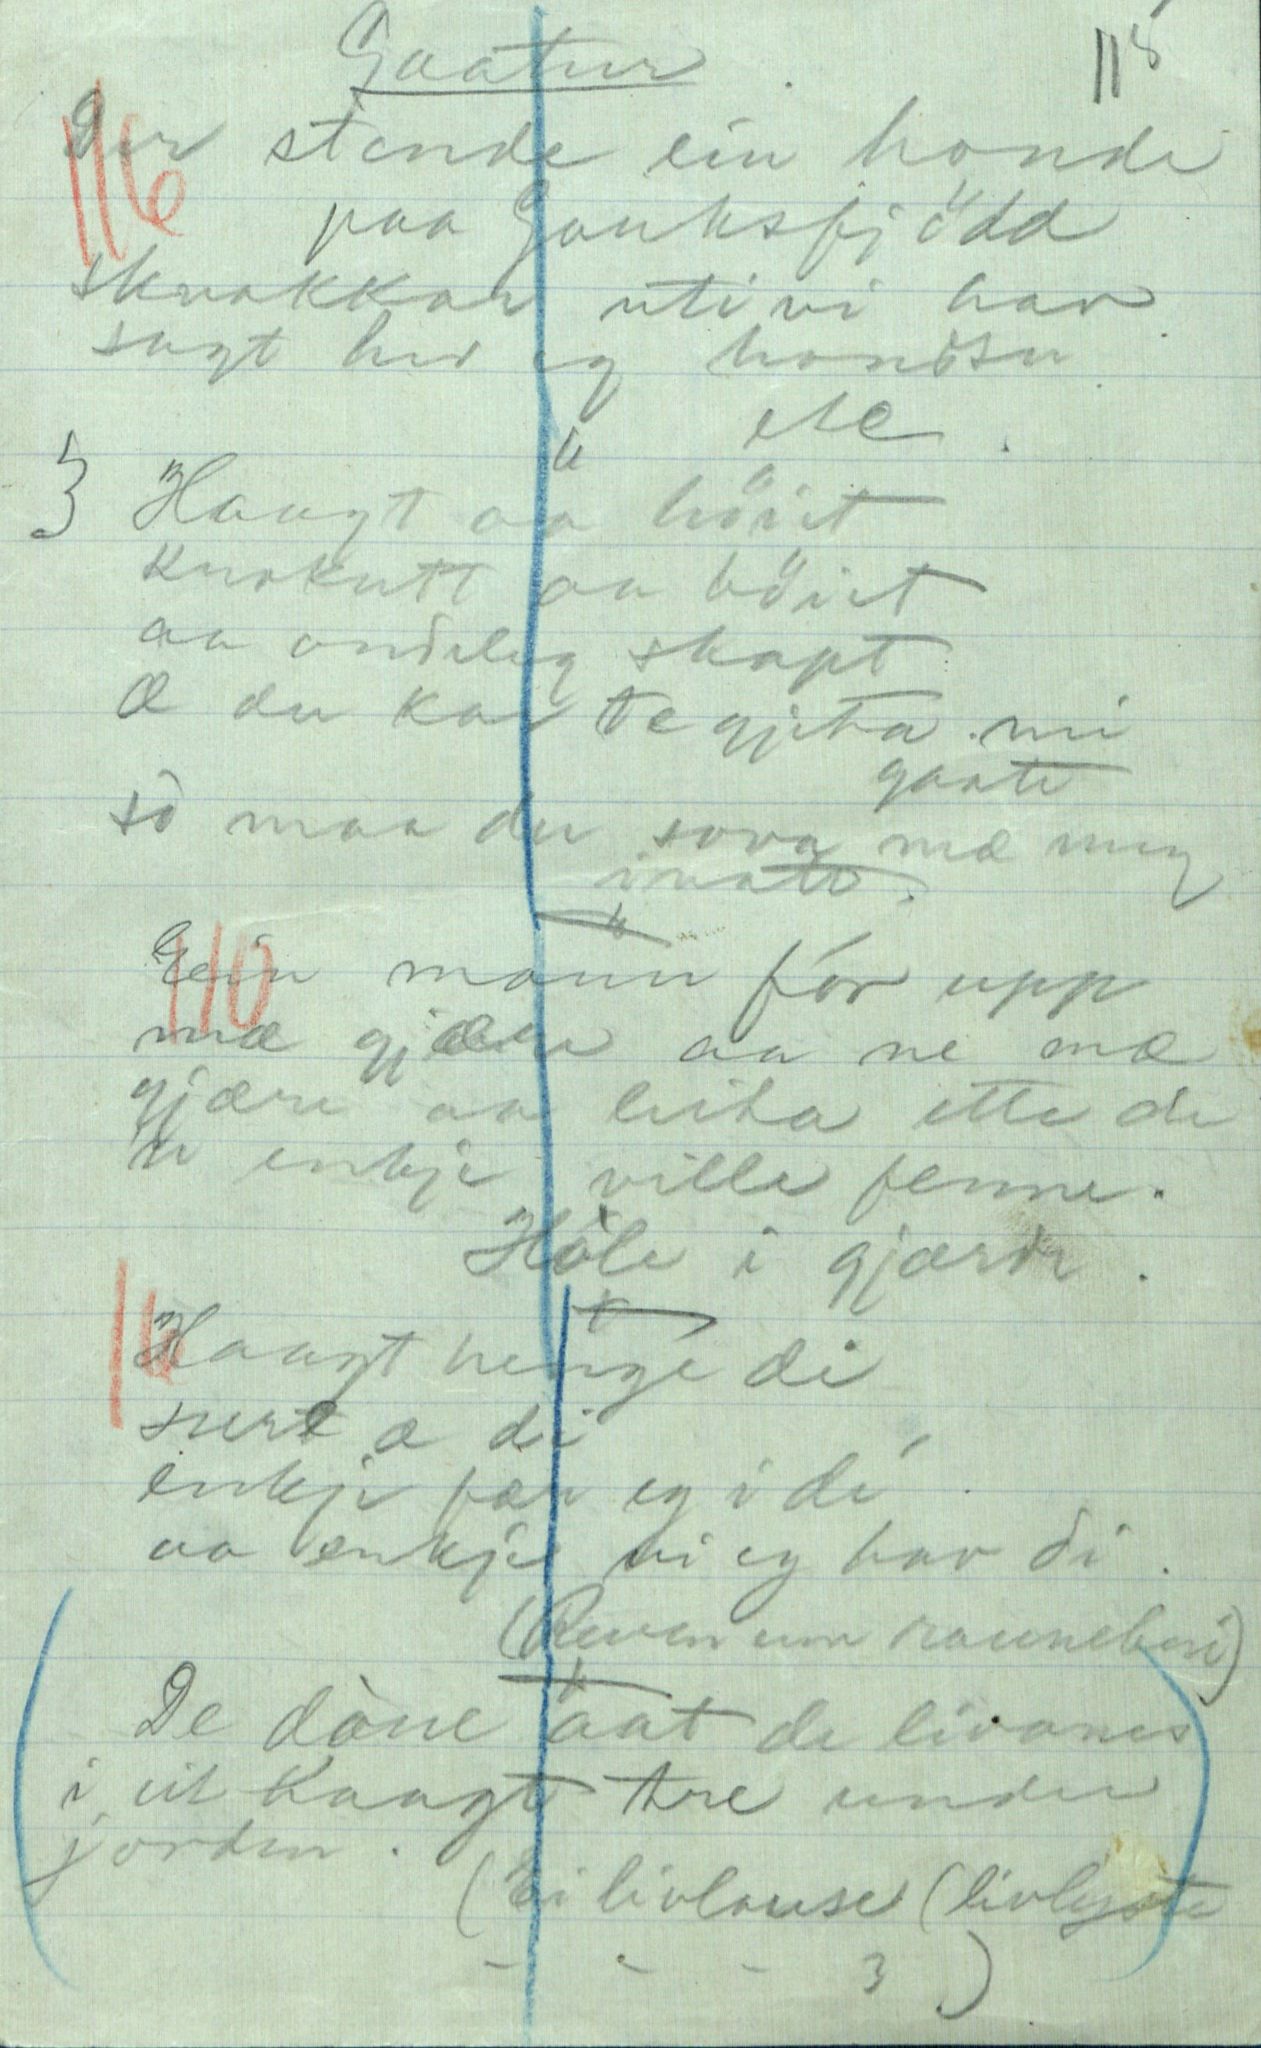 Gaatur
118
116
Der stende ein honde
paa Gauksfjödd
skvakkar uti vi hav
sagt her eg hondsn
etc.
3 Haagt aa höiet
Krokutt aa böiet
aa ondeleg skapt
Æ du kar te gjeta mi
gaate
sò maa du sova mæ meg
inatt.
110
Ein mann fór upp
mæ gjære aa ne mæ
gjære aa leita ette di
'n enkje ville fenne.
Hòle i gjærde.
16
Haagt henge di
surt æ di
enkje fær eg i dé
aa enkje vi eg hav di.
(Reven um raunebæri)
De dòne aat de livanes
i eit haagt tre under
jorden.
(Ei livlause (livlyste
- - - 3)